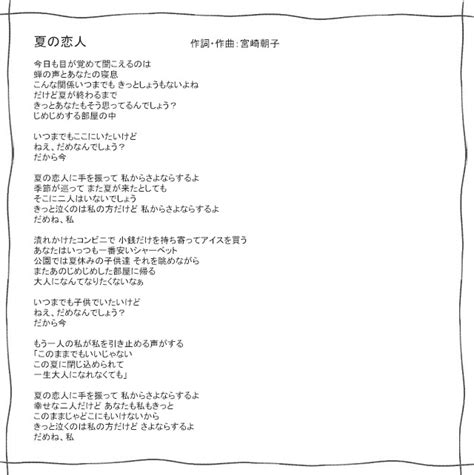 夏の恋人 作詞・作曲：宮崎朝子
今日も目が覚めて聞こえるのは
蝉の声とあなたの寝息
こんな関係いつまでも きっとしょうもないよね
だけど夏が終わるまで
きっとあなたもそう思ってるんでしょう？
じめじめする部屋の中
いつまでもここにいたいけど
ねえ、だめなんでしょう？
だから今
夏の恋人に手を振って 私からさよならするよ
季節が巡って また夏が来たとしても
そこに二人はいないでしょう
きっと泣くのは私の方だけど 私からさよならするよ
だめね、私
潰れかけたコンビニで 小銭だけを持ち寄ってアイスを買う
あなたはいっつも一番安いシャーベット
公園では夏休みの子供達 それを眺めながら
またあのじめじめした部屋に帰る
大人になんてなりたくないなぁ
いつまでも子供でいたいけど
ねえ、だめなんでしょう？
だから今
もう一人の私が私を引き止める声がする
「このままでもいいじゃない
この夏に閉じ込められて
一生大人になれなくても」
夏の恋人に手を振って 私からさよならするよ
幸せな二人だけど あなたも私もきっと
このままじゃどこにもいけないから
きっと泣くのは私の方だけど さよならするよ
だめね、私